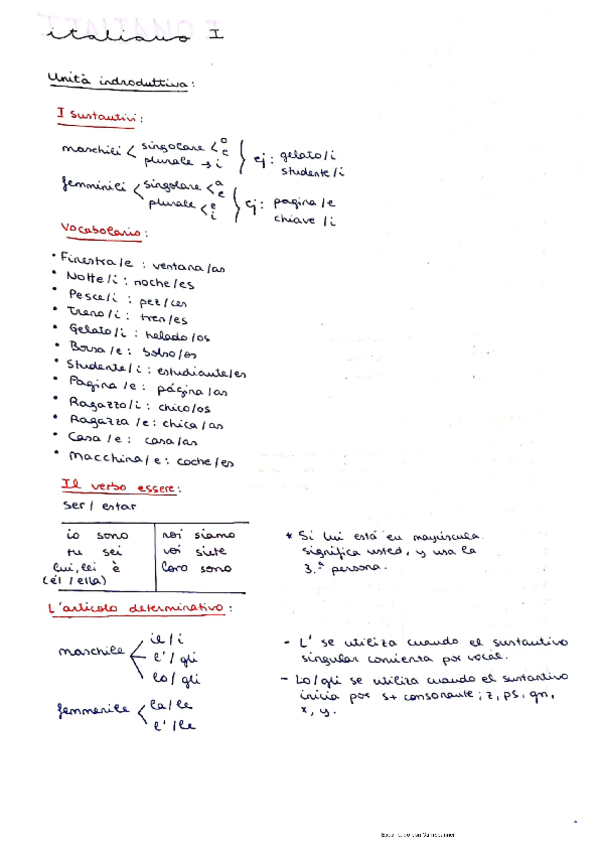 italiano I
Unità indroduttiva:
I sustantivi:
maschili < singolare < o e
plurale → i
ej: gelato/i
studente/i
femminili < singolare < a e
plurale < e i
ej: pagina/e
chiave/i
Vocabolario:
• Finestra/e : ventana/as
• Notte/i : noche/es
• Pesce/i : pez/ces
• Treno/i : tren/es
• Gelato/i : helado/os
• Borsa/e : bolso/os
• Studente/i : estudiante/es
• Pagina/e : página/as
• Ragazzo/i : chico/os
• Ragazza/e : chica/as
• Casa/e : casa/as
• Macchina/e : coche/es
Il verbo essere:
ser / estar
io sono noi siamo
tu sei voi siete
lui, lei è loro sono
(él / ella)
* Si lui está en mayúscula
significa usted, y usa la
3.ª persona.
L'articolo determinativo:
maschile < il/i
l'/gli
lo/gli
femmenile < la/le
l'/le
- L' se utiliza cuando el sustantivo
singular comienza por vocal.
- Lo/gli se utiliza cuando el sustantivo
inicia por s+ consonante; z, ps, gn,
x, y.